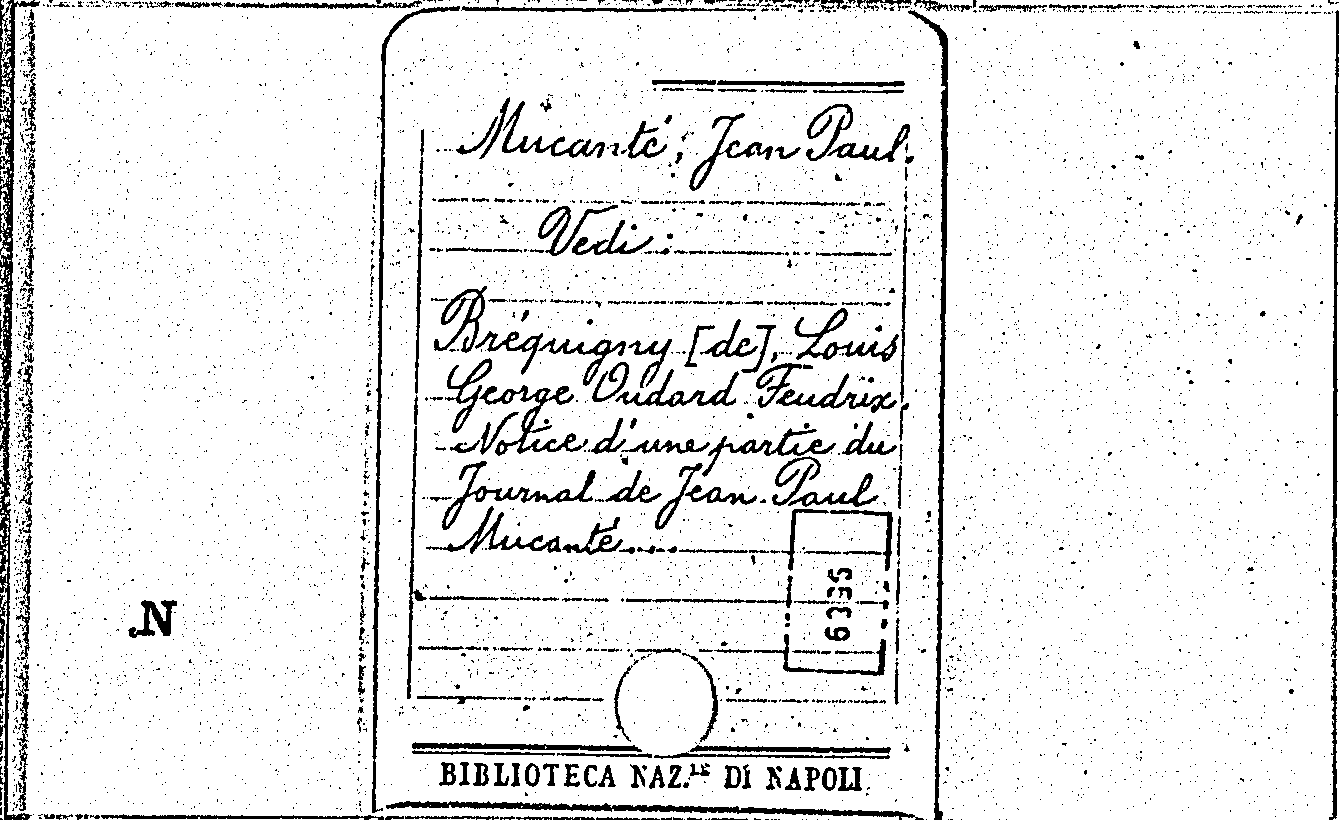 Mucanté, Jean Paul.
Vedi:
Bréquigny [de], Louis
George Oudard Feudrix.
Notice d'une partie du
Journal de Jean Paul
Mucanté....
6335
N
BIBLIOTECA NAZ.LE DI NAPOLI